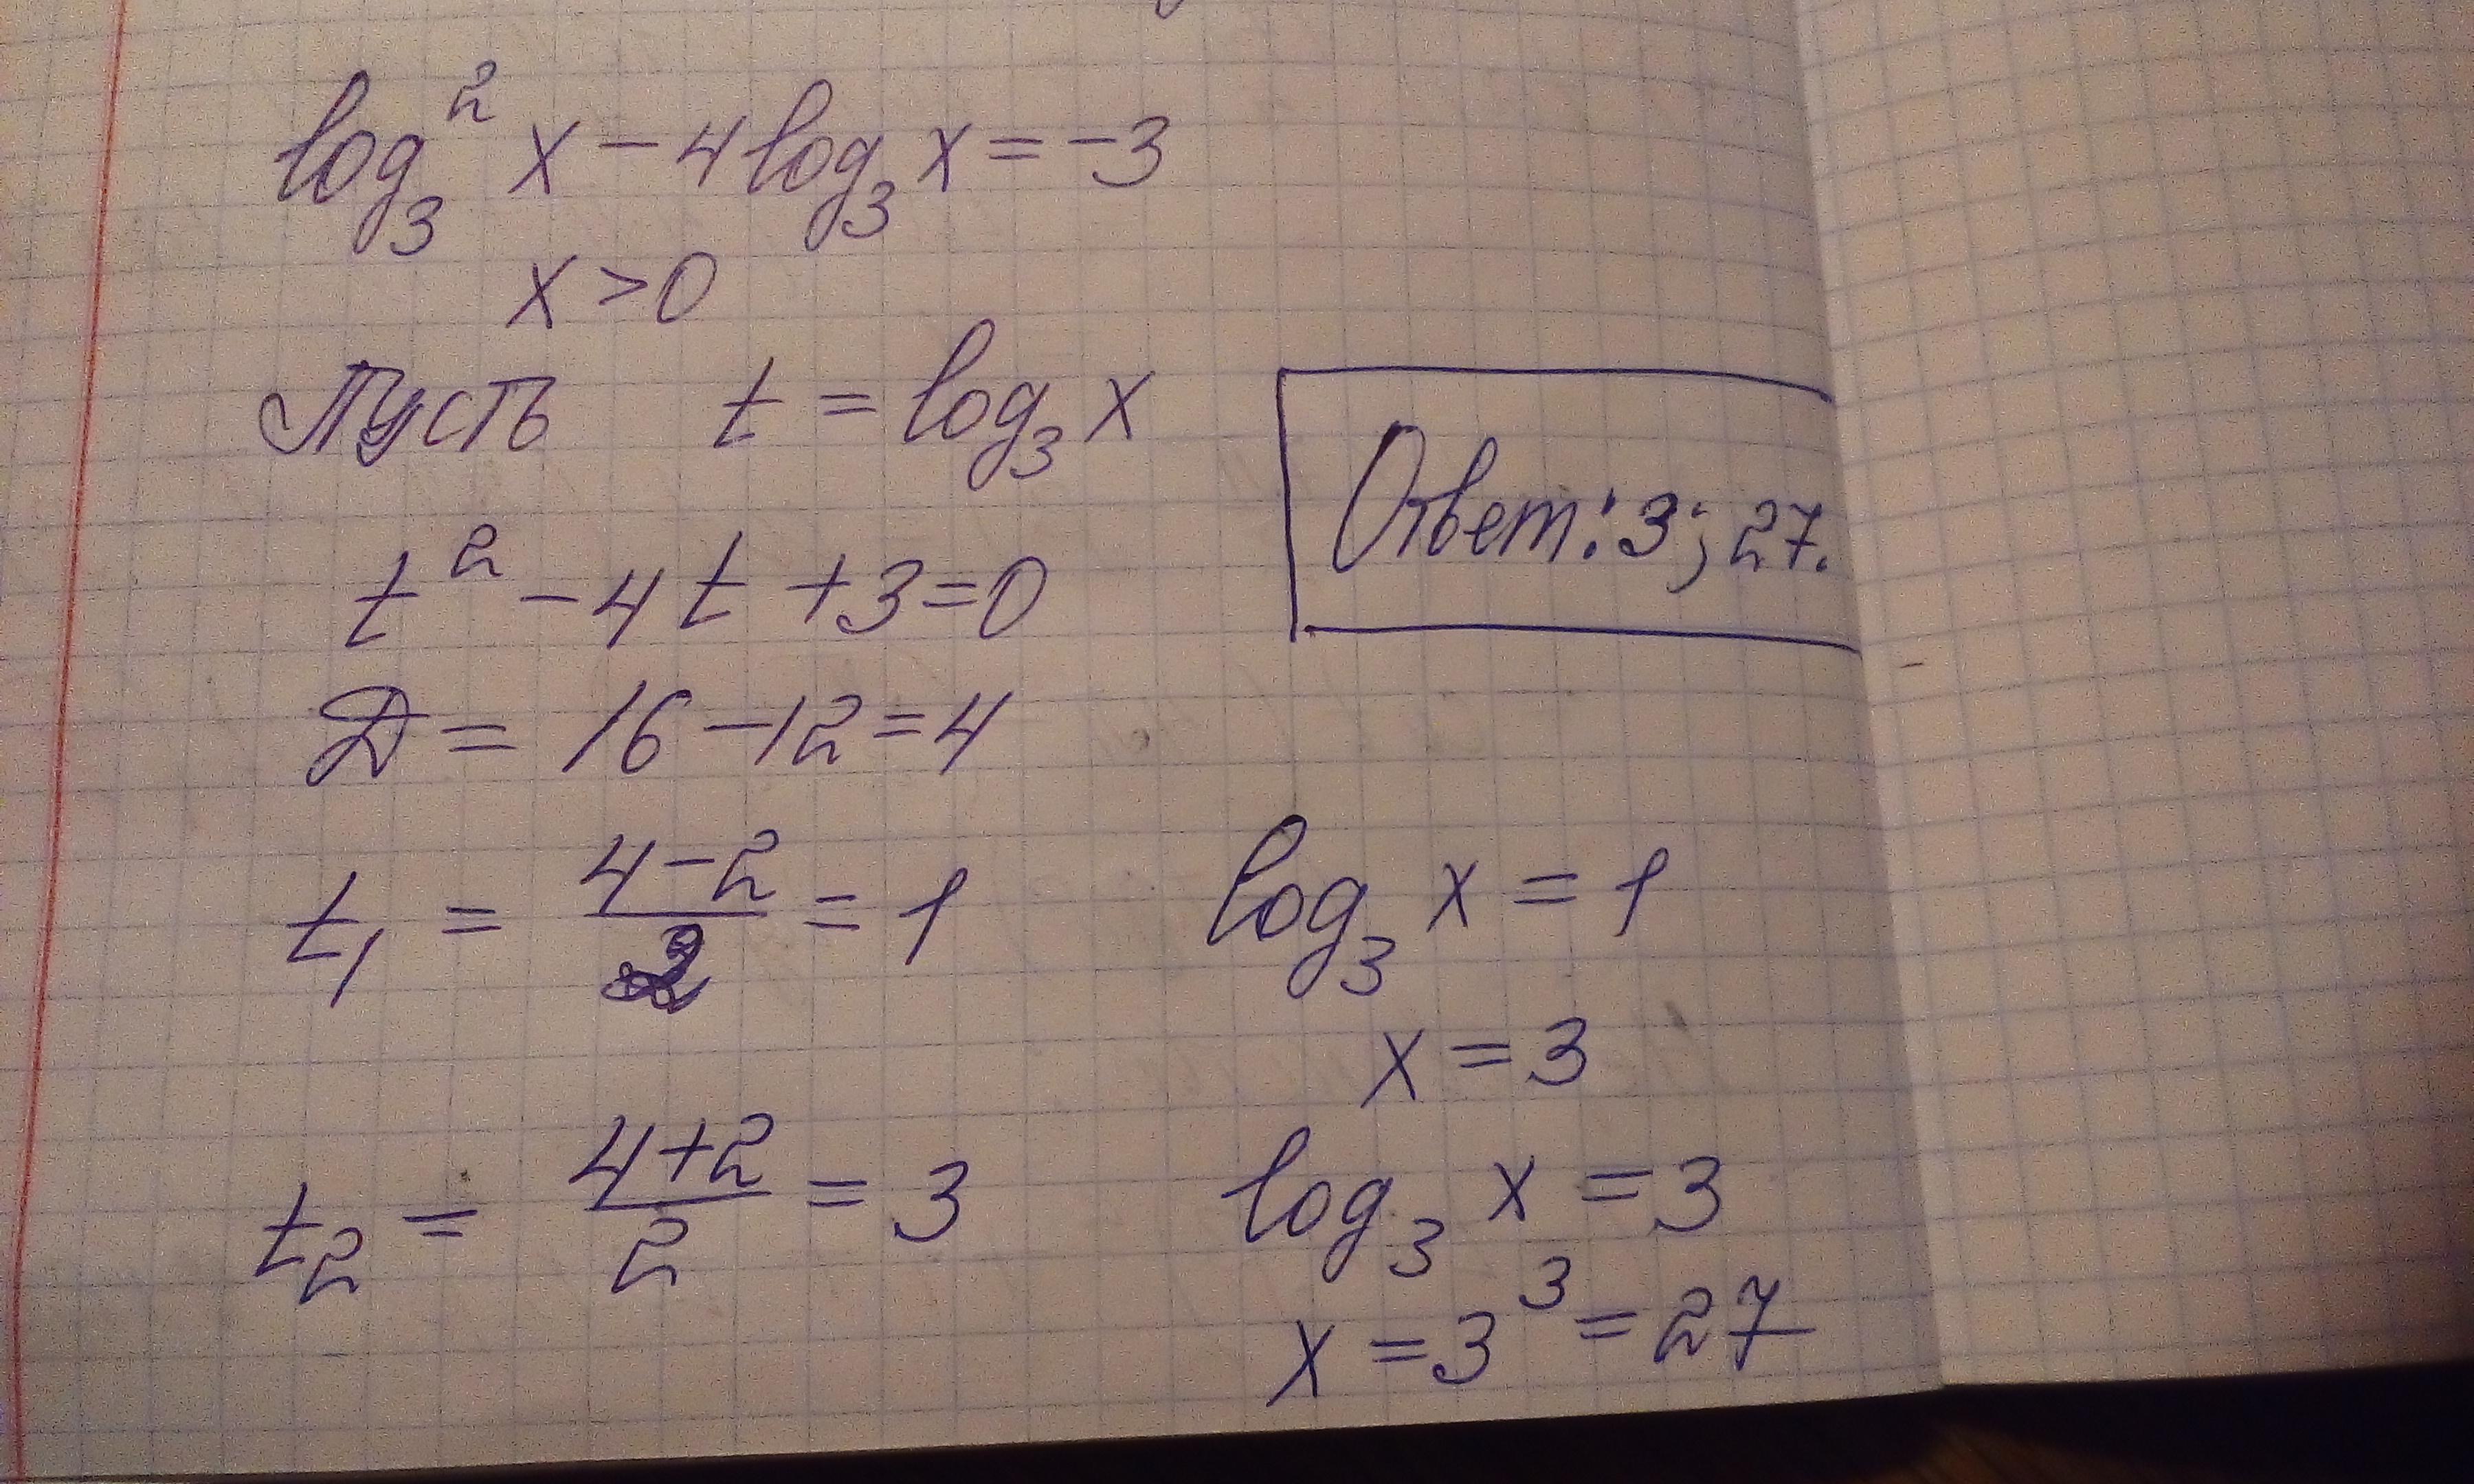 log₃² x − 4 log₃ x = −3
x > 0
Пусть t = log₃ x
t² − 4t + 3 = 0
Д = 16 − 12 = 4
t₁ = (4 − 2)/2 = 1
t₂ = (4 + 2)/2 = 3
Ответ: 3; 27.
log₃ x = 1
x = 3
log₃ x = 3
x = 3³ = 27